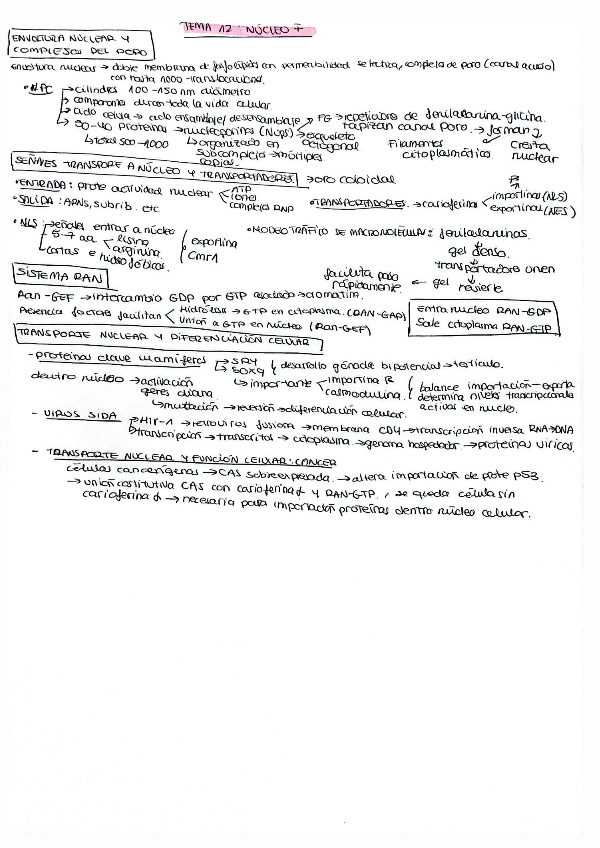 TEMA 12: NÚCLEO I
ENVOLTURA NUCLEAR Y
COMPLEJOS DEL PORO
envoltura nuclear → doble membrana de fosfolípidos con permeabilidad selectiva, complejo de poro (canal acuoso)
con hasta 1000 -translocacional.
• NPC → cilindros 100-150 nm diámetro
→ componente duran toda la vida celular.
→ ciclo celula → ciclo ensamblaje/desensamblaje
→ 30-40 proteínas → nucleoporinas (Nups)
→ FG → repeticiones de fenilalanina-glicina.
tapizan canal poro. → forman 2
↳ total 500-1000
↳ organizado en
subcomplejos → múltiples
copias.
→ esqueleto
octogonal
Filamentos
citoplasmáticos
Cresta
nuclear
SEÑALES TRANSPORTE A NÚCLEO Y TRANSPORTADORES → oro coloidal
• ENTRADA: prote actividad nuclear
ATP
iones
complejos RNP
• SALIDA: ARNs, subrib. etc.
• TRANSPORTADORES → carioferinas
β
importinas (NLS)
exportinas (NES)
• NLS → señales entrar a núcleo
5-7 aa
lisina
arginina.
cortas e hidrofóbicas.
exportina
Crm1
• MODELO TRÁFICO DE MACROMOLÉCULAS: fenilalaninas.
gel denso.
transportadores unen
facilita paso
rápidamente. ← gel revierte
SISTEMA RAN
Ran-GEF → intercambio GDP por GTP asociado → cromatina.
Presencia factores facilitan
Hidrólisis → GTP en citoplasma. (RAN-GAP)
Unión a GTP en núcleo (Ran-GEF)
Entra nucleo RAN-GDP
Sale citoplasma RAN-GTP
TRANSPORTE NUCLEAR Y DIFERENCIACIÓN CELULAR
- proteínas clave mamíferos → SRY
→ SOX9
desarrollo gónada bipotencial → testículo.
dentro núcleo → activación
genes diana
↳ importante
importina β
calmodulina.
balance importación-exporta
determina niveles transcripcionala
activos en nucleo.
↳ mutación → reversión → diferenciación celular.
- VIRUS SIDA → HIV-1 → retrovirus fusiona → membrana CD4 → transcripción inversa RNA→DNA
→ transcripción → transcritos → citoplasma → genoma hospedador → proteínas víricas.
- TRANSPORTE NUCLEAR Y FUNCIÓN CELULAR: CANCER
células cancerígenas → CAS sobreexpresada. → altera importación de prote P53.
→ unión constitutiva CAS con carioferina α y RAN-GTP., se queda célula sin
carioferina α → necesaria para importación proteínas dentro núcleo celular.